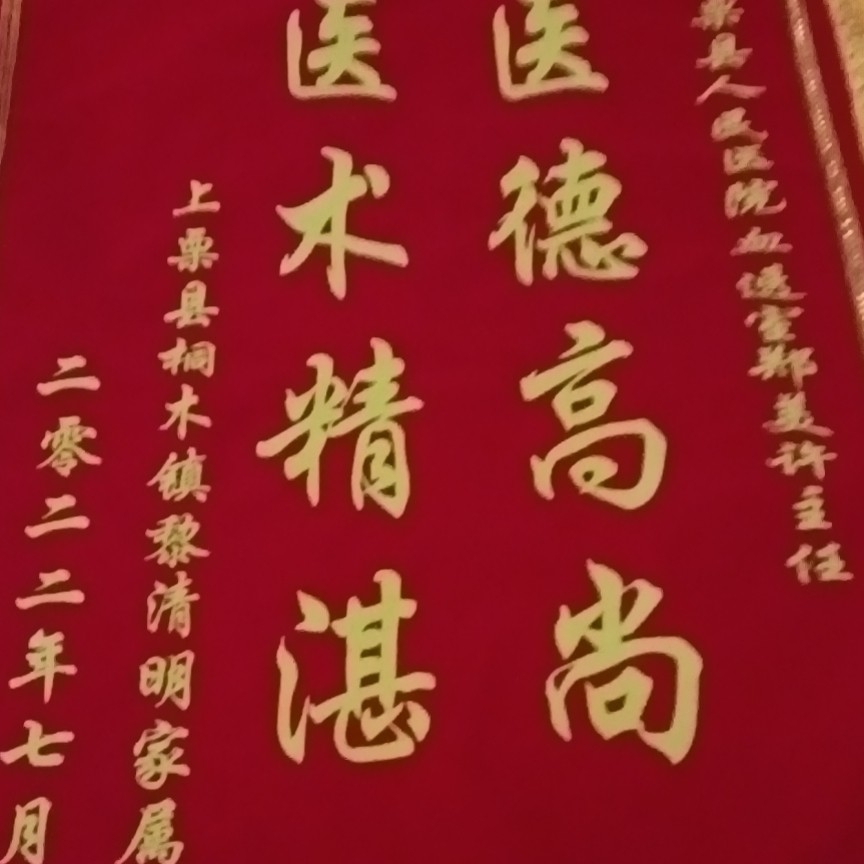 栗县人民医院血透室郑美许主任
医德高尚
医术精湛
上栗县桐木镇黎清明家属
二零二二年七月